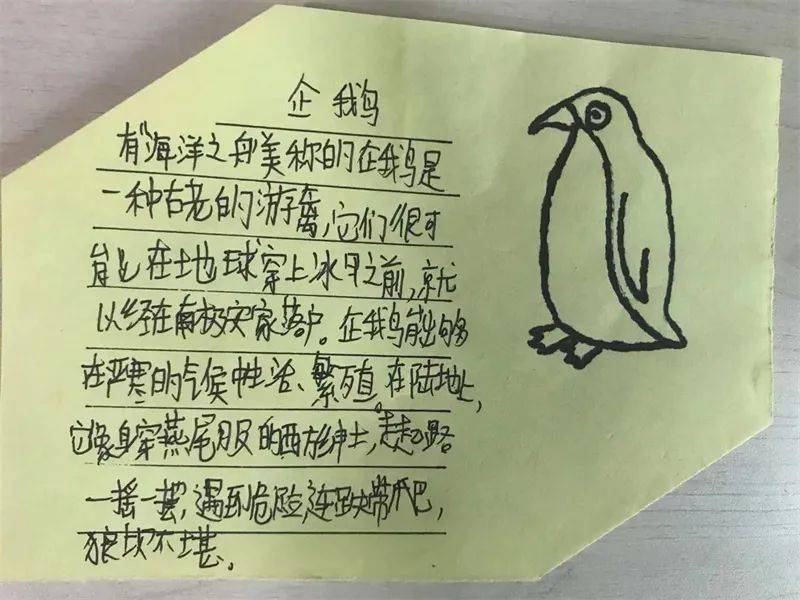 企鹅
有“海洋之舟美称的企鹅是
一种古老的游禽,它们很可
能在地球穿上冰甲之前,就
以经在南极安家落户。企鹅能够
在严寒的气候中生活、繁殖。在陆地上,
它像身穿燕尾服的西方绅士,走起路
一摇一摆,遇到危险,连跌带爬,
狼狈不堪。